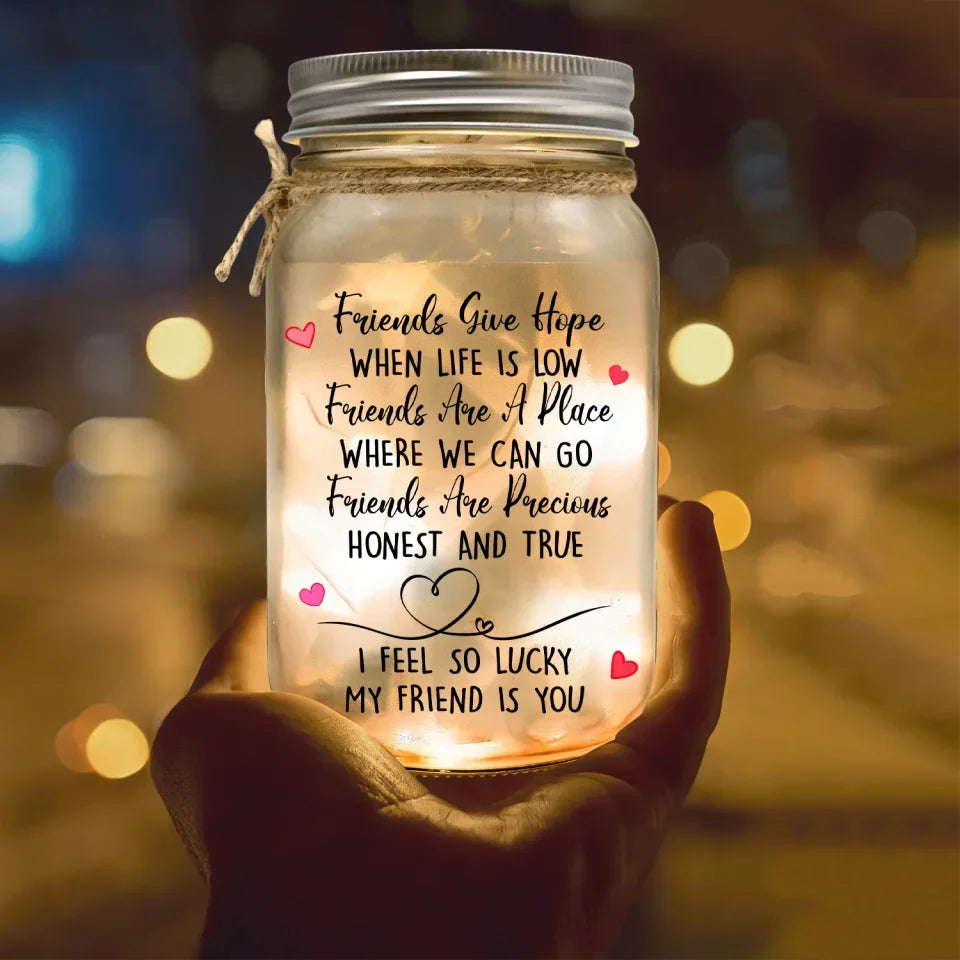 Friends Give Hope
WHEN LIFE IS LOW
Friends Are A Place
WHERE WE CAN GO
Friends Are Precious
HONEST AND TRUE
I FEEL SO LUCKY
MY FRIEND IS YOU